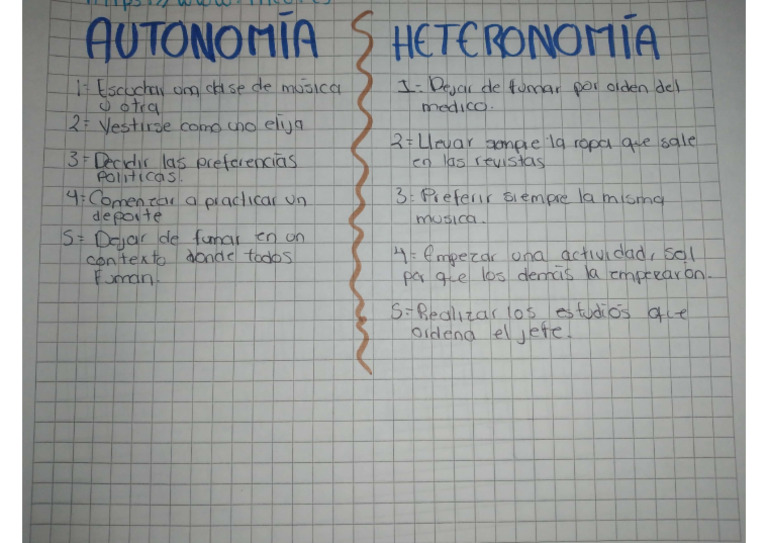 AUTONOMÍA
1= Escuchar una clase de música
u otra
2= Vestirse como uno elija
3= Decidir las preferencias
políticas.
4= Comenzar a practicar un
deporte
5= Dejar de fumar en un
contexto donde todos
Fuman.
HETERONOMÍA
1= Dejar de fumar por orden del
medico.
2= Llevar sempre la ropa que sale
en las revistas
3= Preferir siempre la misma
musica.
4= Empezar una actividad, sol
por que los demás la empezaron.
5= Realizar los estudios que
ordena el jefe.